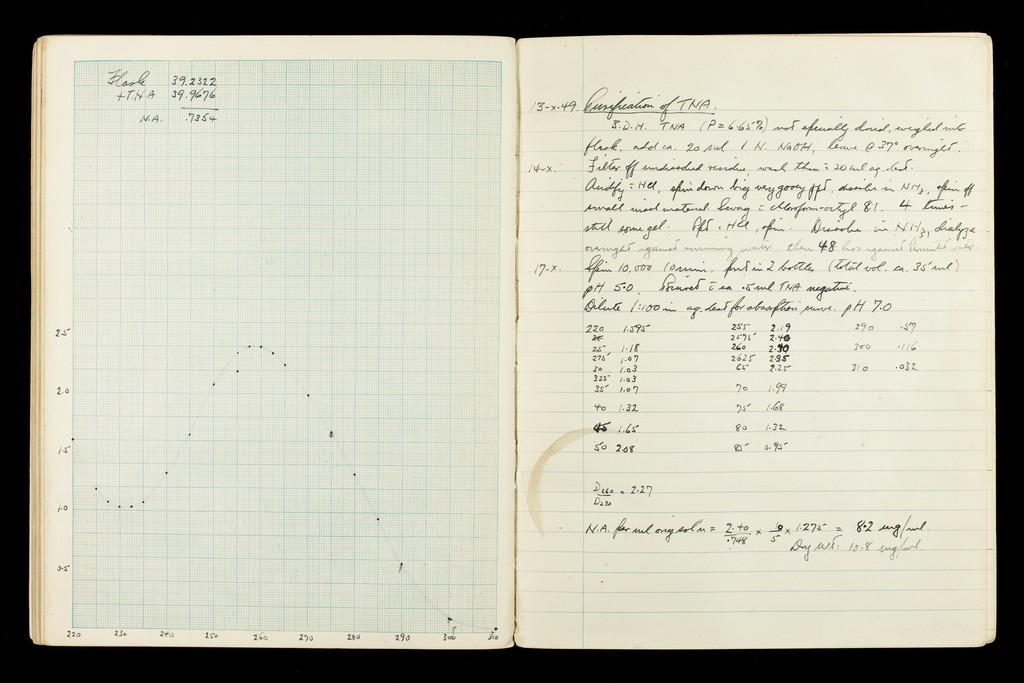 Flask 39.2322
+T.N.A 39.9676
N.A. .7354
2.5
2.0
1.5
1.0
0.5
220 230 240 250 260 270 280 290 300 310
13-x-49. Purification of TNA.
B.D.H. TNA (P = 6.65%) not specially dried, weighed into
flask, add ca. 20 ml 1 N. NaOH, leave @ 37° overnight.
14-x. Filter off undissolved residue, wash then 20 ml aq. dest.
Acidify HCl, spin down big very gooey ppt, dissolve in NH3, spin off
small insol material. Sevag = chloroform-octyl 8:1. 4 times -
still some gel. Ppt HCl, spin. Dissolve in NH3, dialyze
overnight against running water then 48 hrs against water.
17-x. Spin 10,000 10 min. put in 2 bottles (total vol. ca. 35 ml)
pH 5.0. c̄ ca .5 ml TNA negative.
Dilute 1:100 in aq. dest for absorption curve. pH 7.0
220 1.595 255 2.19 290 .57
2575 2.40
25 1.18 260 2.40 300 .116
275 1.07 2625 235
30 1.03 65 2.25 310 .032
325 1.03
35 1.07 70 1.99
40 1.32 75 1.68
45 1.65 80 1.32
50 2.08 85 0.95
D260
D230 = 2.27
N.A. per ml orig sol'n = 2.40/.748 × 10/5 × 1.275 = 8.2 mg/ml.
Dry Wt: 10.8 mg/ml.